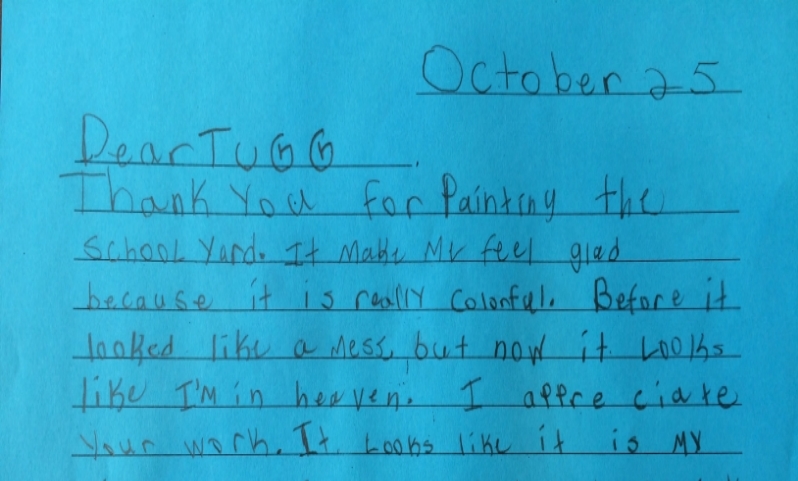 October 25
Dear TUGG
Thank you for Painting the
School Yard. It Make Me feel glad
because it is really Colorful. Before it
looked like a Mess, but now it LOOks
like I'M in heaven. I appre ciate
your work. It Looks like it is MY